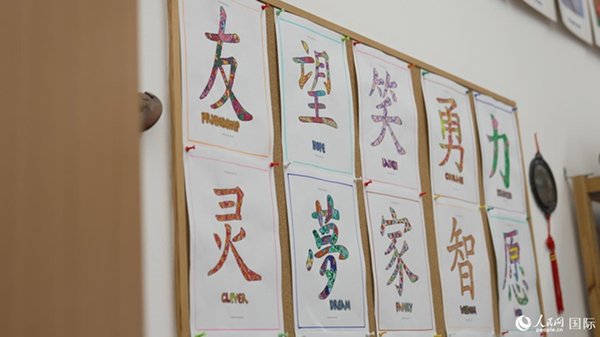 友 望 笑 勇 力
FRIENDSHIP HOPE LAUGH COURAGE
灵 夢 家 智 愿
CLEVER. DREAM FAMILY WISDOM
人民网 国际
people.cn